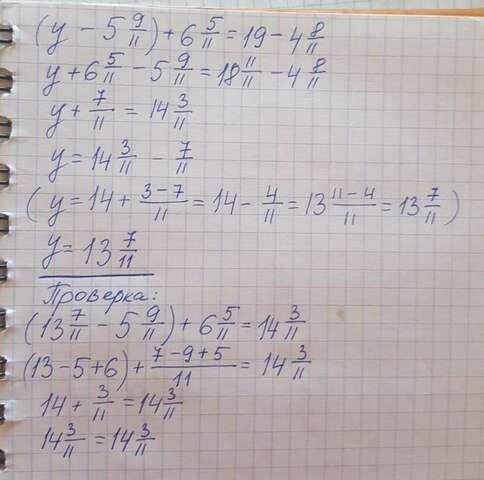 (y - 5 9/11) + 6 5/11 = 19 - 4 8/11
y + 6 5/11 - 5 9/11 = 18 11/11 - 4 8/11
y + 7/11 = 14 3/11
y = 14 3/11 - 7/11
(y = 14 + (3-7)/11 = 14 - 4/11 = 13 (11-4)/11 = 13 7/11)
y = 13 7/11
Проверка:
(13 7/11 - 5 9/11) + 6 5/11 = 14 3/11
(13-5+6) + (7-9+5)/11 = 14 3/11
14 + 3/11 = 14 3/11
14 3/11 = 14 3/11